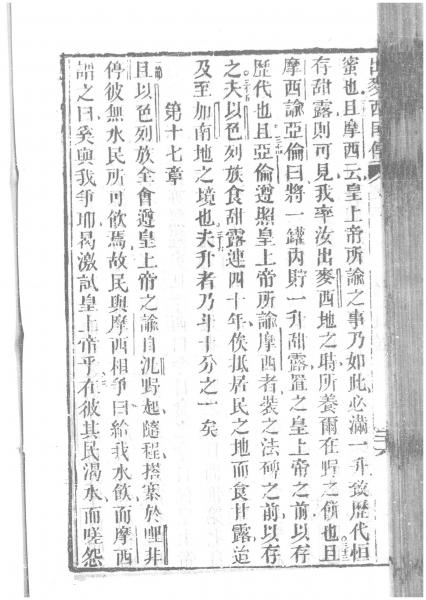 出麥西國傳
蜜也且摩西云皇上帝所諭之事乃如此必滿一升致歷代恒
存甜露則可見我率汝出麥西地之時所養爾在野之餅也且
摩西諭亞倫曰將一罐內貯一升甜露置之皇上帝之前以存
歷代也且亞倫遵照皇上帝所諭摩西者裝之法碑之前以存
之夫以色列族食甜露連四十年俟抵居民之地而食甘露迨
及至加南地之境也夫升者乃斗十分之一矣
第十七章
且以色列族全會遵皇上帝之諭自汛野起隨程搭寨於啡非
停彼無水民所可飲焉故民與摩西相爭曰給我水飲而摩西
謂之曰奚與我爭耶曷激試皇上帝乎在彼其民渴水而嗟怨